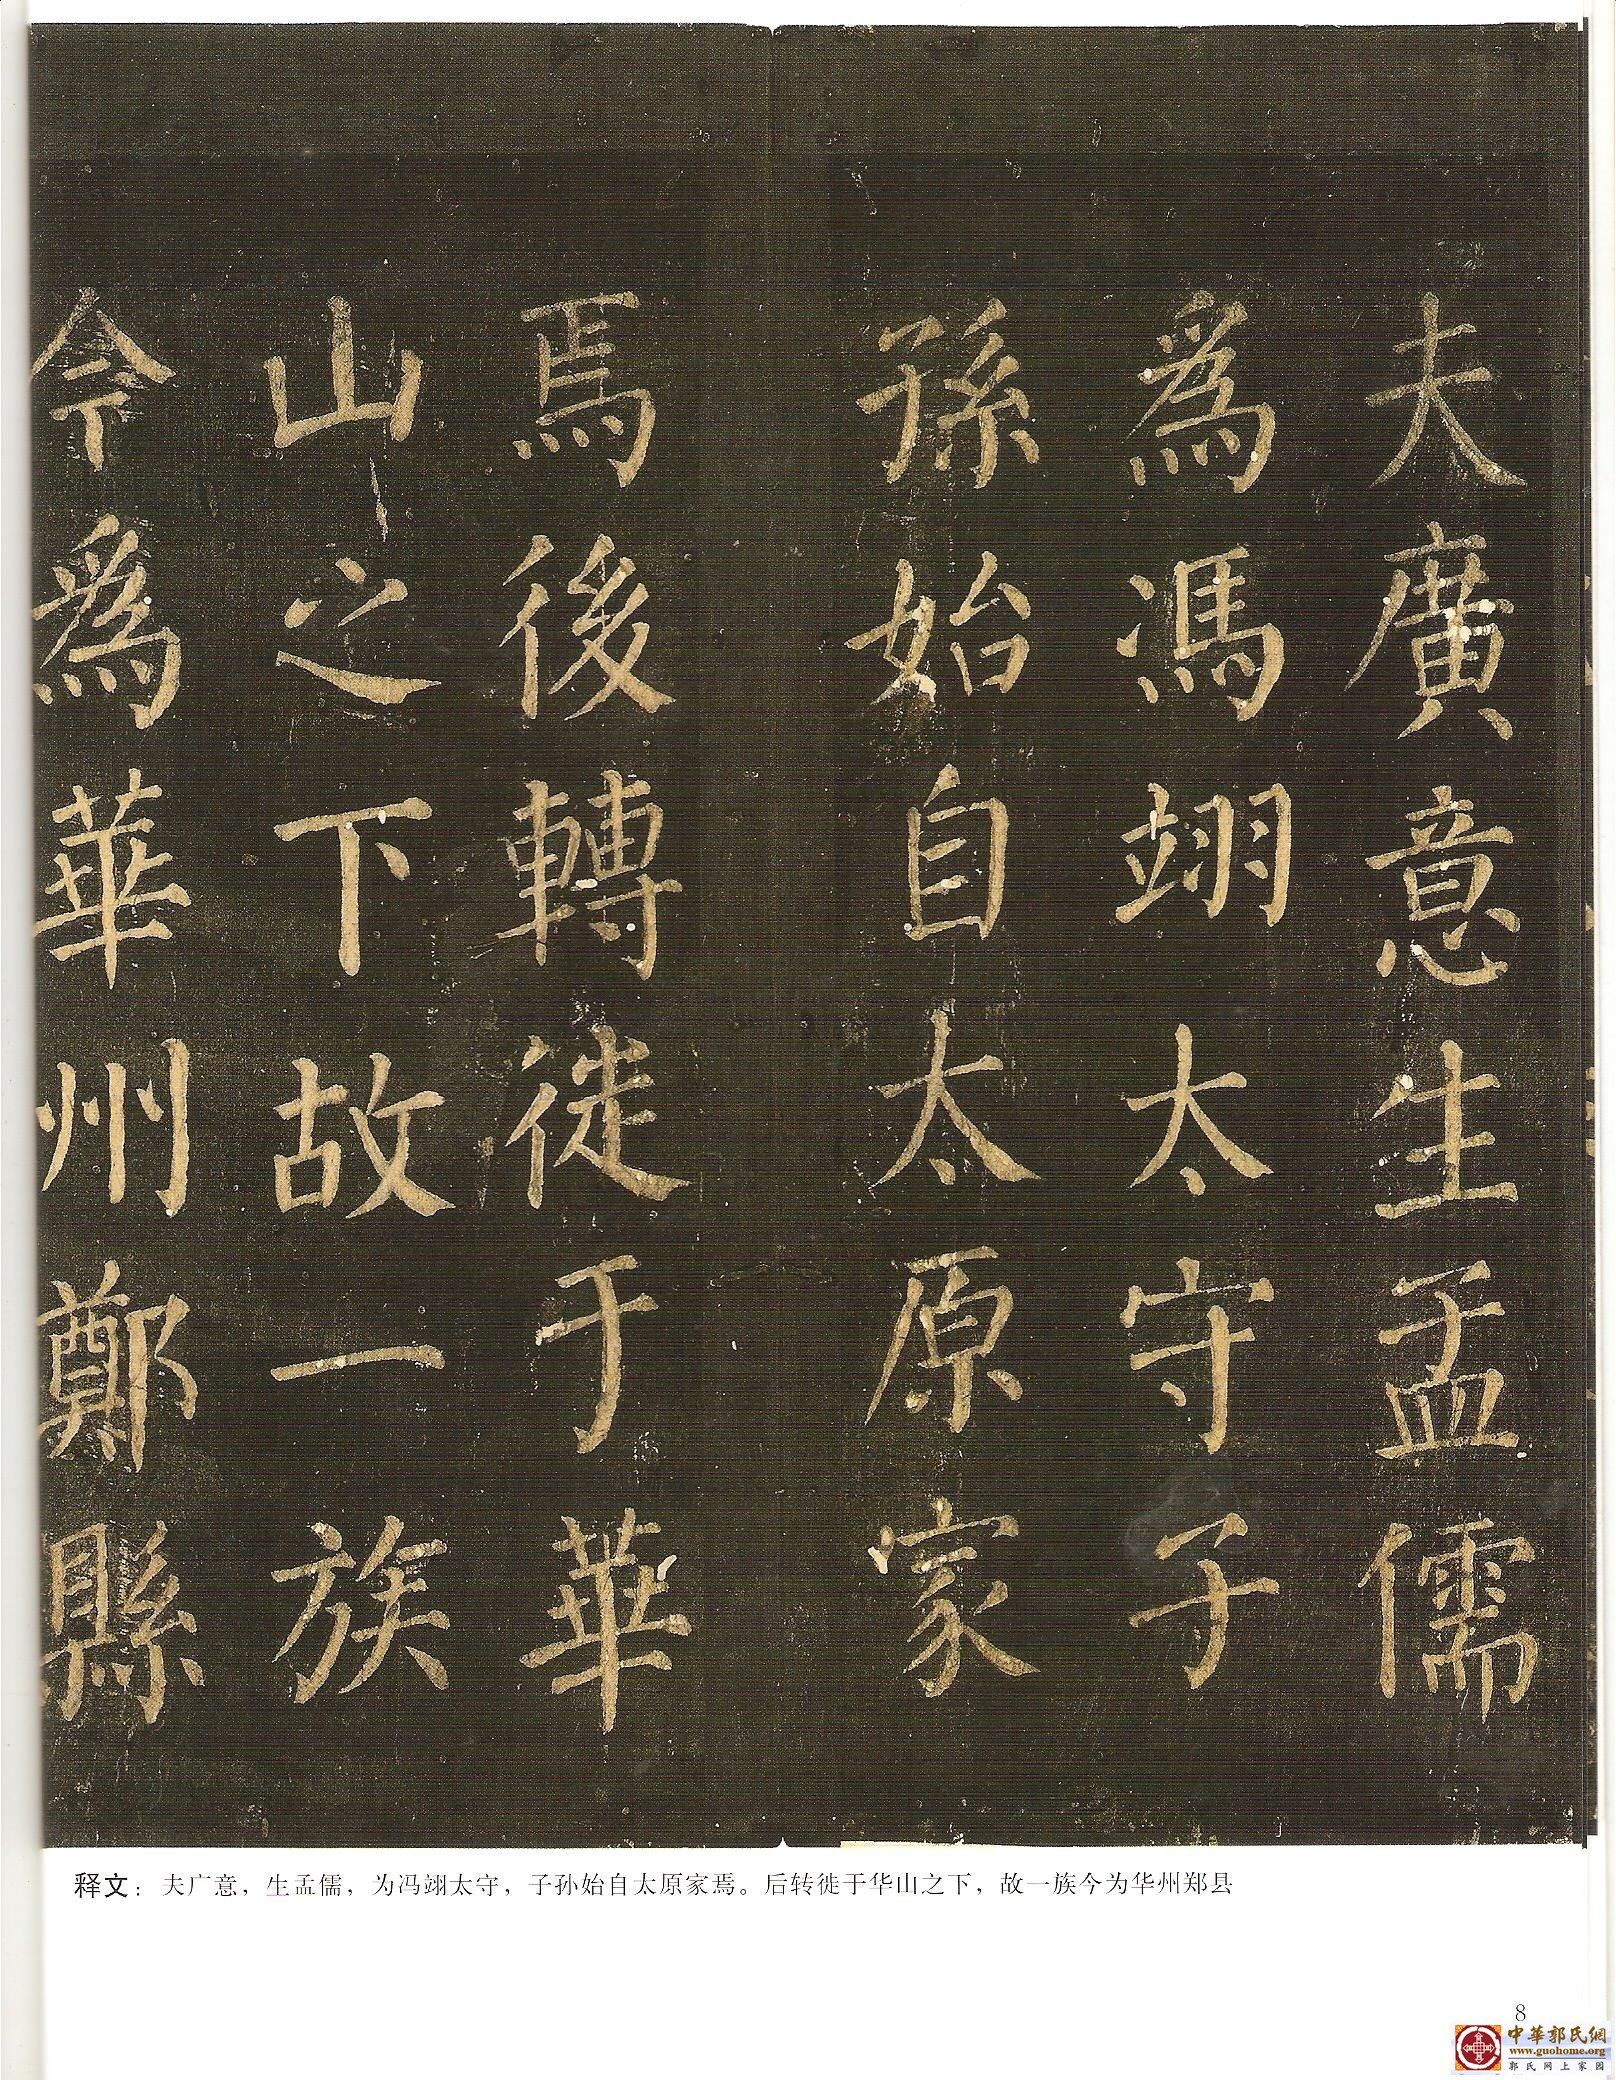 夫廣意生孟儒
為馮翊太守子
孫始自太原家
焉後轉徙于華
山之下故一族
今為華州鄭縣
释文：夫广意，生孟儒，为冯翊太守，子孙始自太原家焉。后转徙于华山之下，故一族今为华州郑县
8
中華郭氏網
www.guohome.org
郭氏网上家园